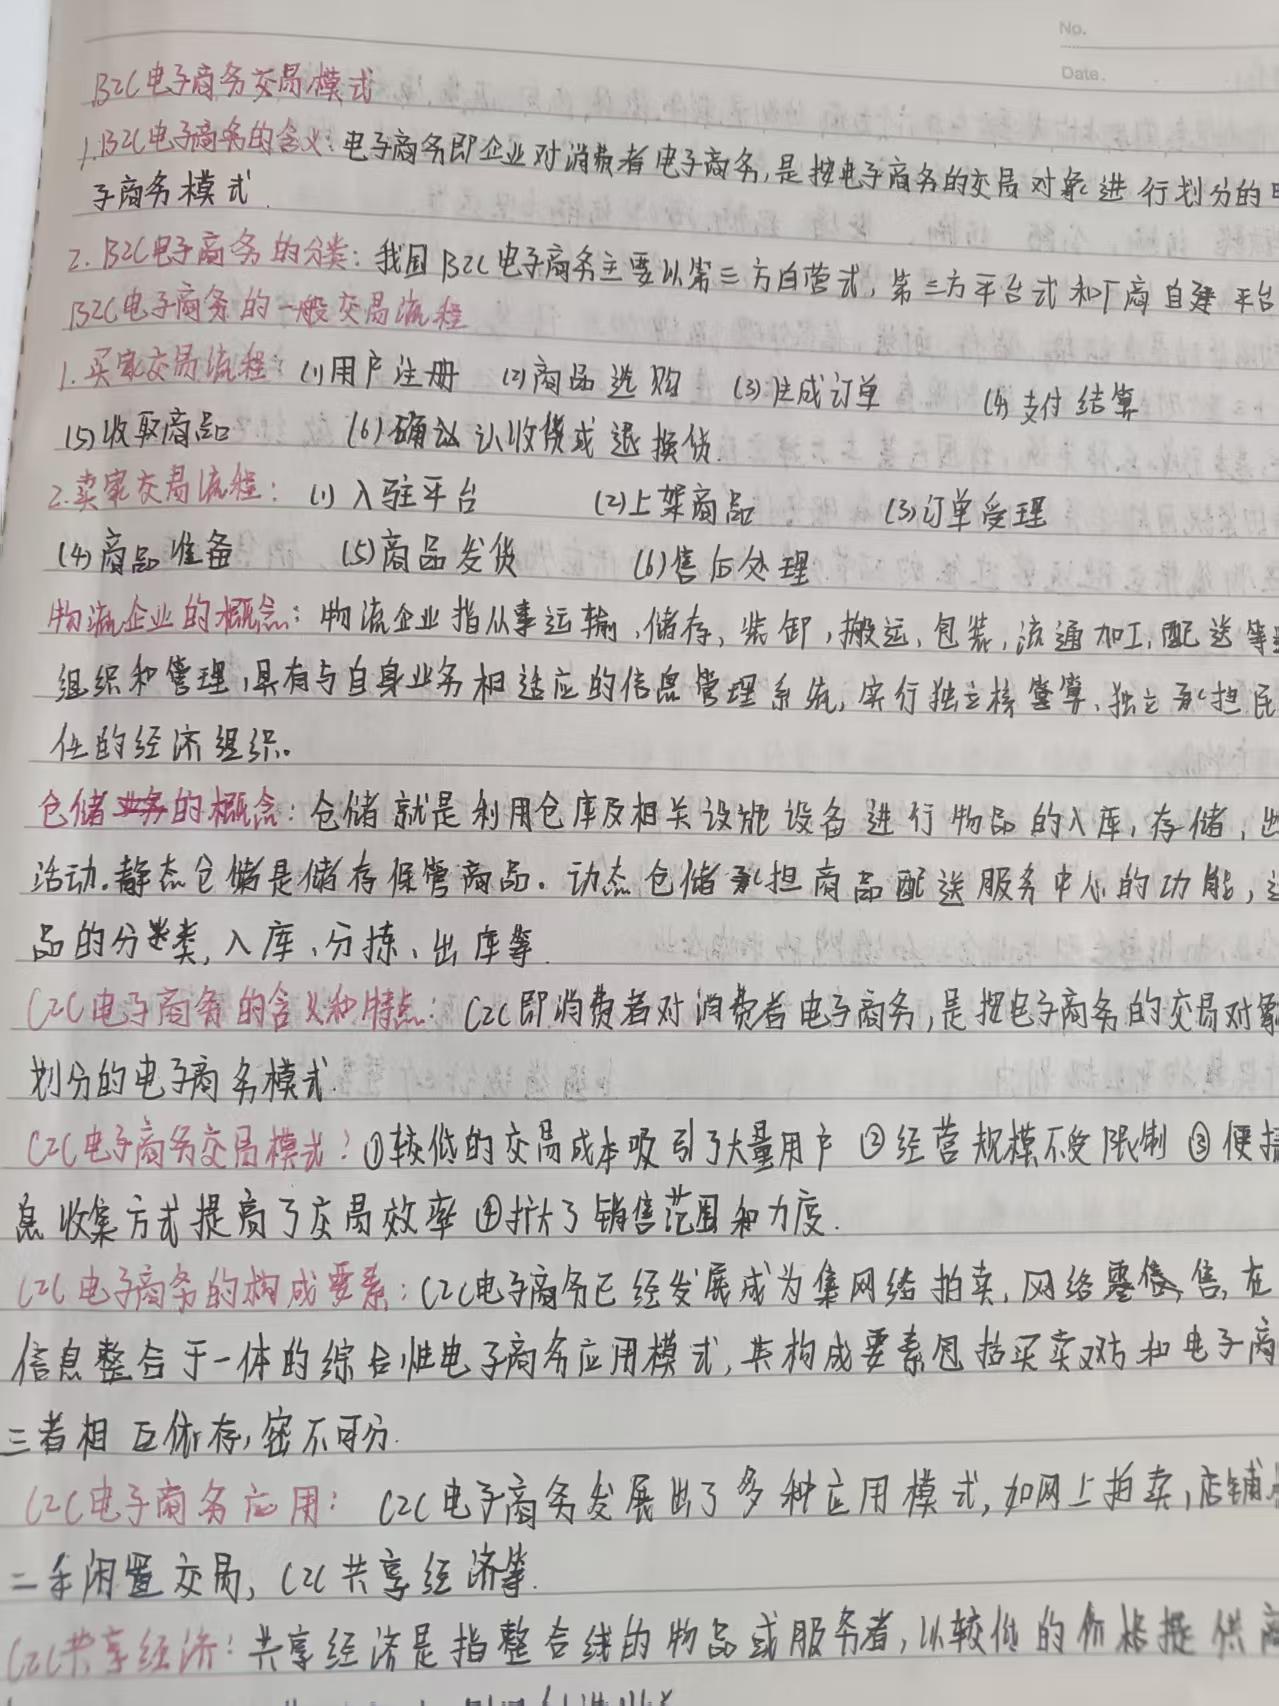 No.
Date.
B2C电子商务交易模式
1.B2C电子商务的含义:电子商务即企业对消费者电子商务,是按电子商务的交易对象进行划分的
子商务模式.
2.B2C电子商务的分类:我国B2C电子商务主要以第三方自营式,第三方平台式和厂商自建平台
B2C电子商务的一般交易流程
1.买家交易流程:(1)用户注册 (2)商品选购 (3)生成订单 (4)支付结算
(5)收取商品 (6)确认收货或退换货.
2.卖家交易流程:(1)入驻平台 (2)上架商品 (3)订单受理
(4)商品准备 (5)商品发货 (6)售后处理
物流企业的概念:物流企业指从事运输,储存,装卸,搬运,包装,流通加工,配送等
组织和管理,具有与自身业务相适应的信息管理系统,实行独立核算、独立承担民
任的经济组织。
仓储业务的概念:仓储就是利用仓库及相关设施设备进行物品的入库,存储,出
活动.静态仓储是储存保管商品.动态仓储承担商品配送服务中心的功能,
品的分类,入库、分拣、出库等.
C2C电子商务的含义和特点:C2C即消费者对消费者电子商务,是按电子商务的交易对象
划分的电子商务模式.
C2C电子商务交易模式:①较低的交易成本吸引了大量用户 ②经营规模不受限制 ③便捷
息收集方式提高了交易效率 ④扩大了销售范围和力度.
C2C电子商务的构成要素:C2C电子商务已经发展成为集网络拍卖,网络零售,在
信息整合于一体的综合性电子商务应用模式,其构成要素包括买卖双方和电子商
三者相互依存,密不可分.
C2C电子商务应用:C2C电子商务发展出了多种应用模式,如网上拍卖,店铺
二手闲置交易,C2C共享经济等.
C2C共享经济:共享经济是指整合线的物品或服务者,以较低的价格提供